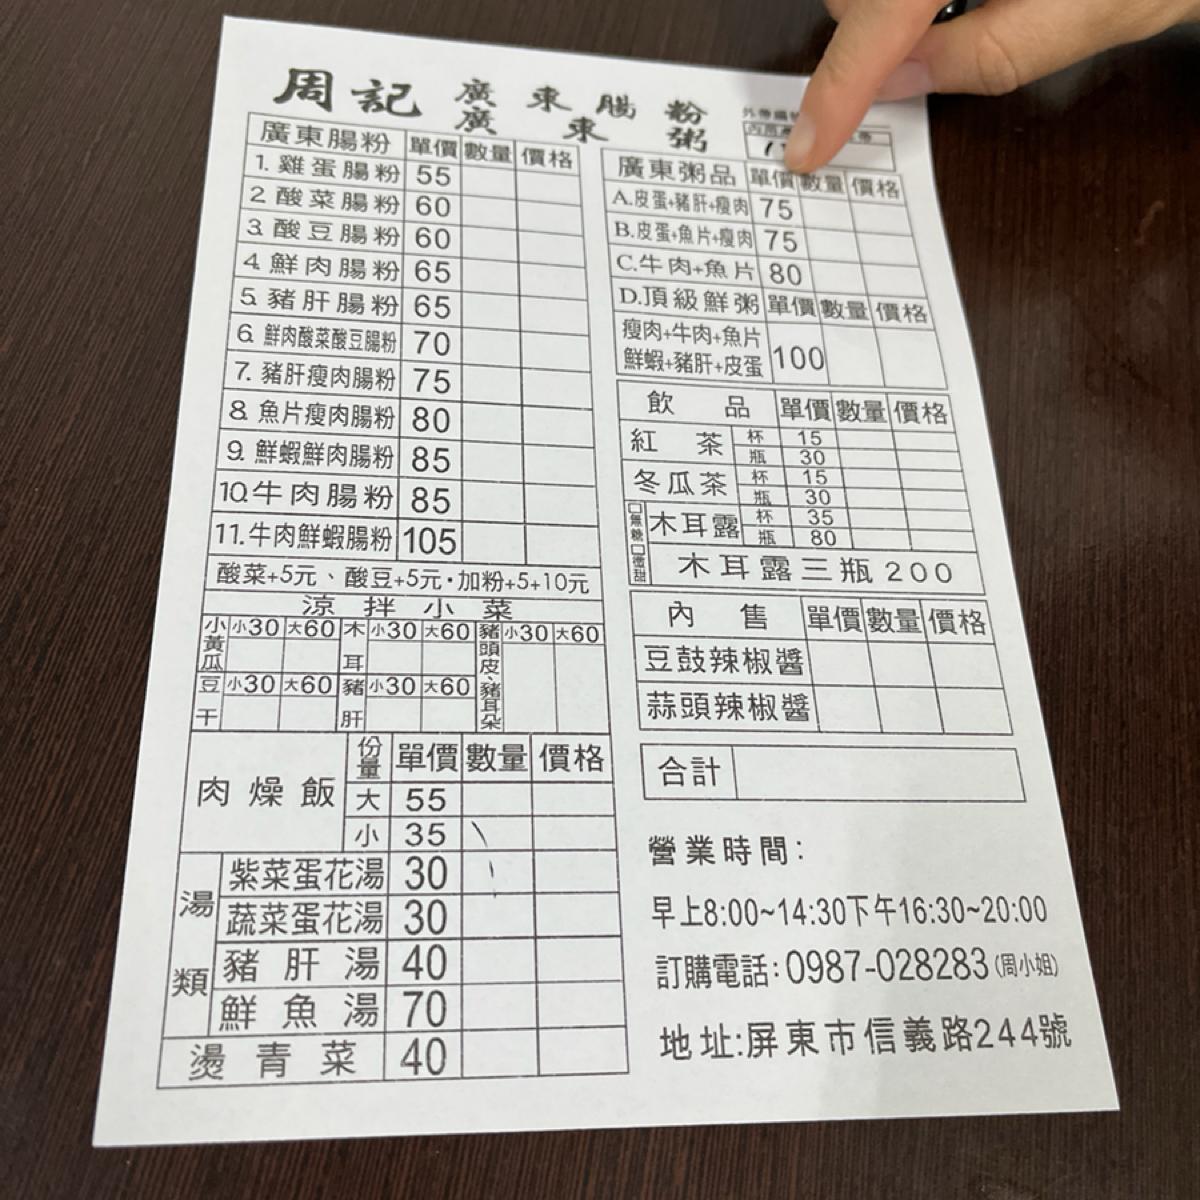 周記 廣東腸粉
廣東粥
廣東腸粉 單價 數量 價格
1. 雞蛋腸粉 55
2. 酸菜腸粉 60
3. 酸豆腸粉 60
4. 鮮肉腸粉 65
5. 豬肝腸粉 65
6. 鮮肉酸菜酸豆腸粉 70
7. 豬肝瘦肉腸粉 75
8. 魚片瘦肉腸粉 80
9. 鮮蝦鮮肉腸粉 85
10. 牛肉腸粉 85
11. 牛肉鮮蝦腸粉 105
酸菜+5元、酸豆+5元·加粉+5+10元
涼拌小菜
小黃瓜 小30 大60 木耳 小30 大60 豬頭皮、豬耳朵 小30 大60
豆干 小30 大60 豬肝 小30 大60
肉燥飯 份量 單價 數量 價格
大 55
小 35
湯類
紫菜蛋花湯 30
蔬菜蛋花湯 30
豬肝湯 40
鮮魚湯 70
燙青菜 40
外帶編
內用
廣東粥品 單價 數量 價格
A.皮蛋+豬肝+瘦肉 75
B.皮蛋+魚片+瘦肉 75
C.牛肉+魚片 80
D.頂級鮮粥 單價 數量 價格
瘦肉+牛肉+魚片
鮮蝦+豬肝+皮蛋 100
飲品 單價 數量 價格
紅茶 杯 15
瓶 30
冬瓜茶 杯 15
瓶 30
□無糖 □微甜
木耳露 杯 35
瓶 80
木耳露三瓶200
內售 單價 數量 價格
豆鼓辣椒醬
蒜頭辣椒醬
合計
營業時間:
早上8:00~14:30下午16:30~20:00
訂購電話:0987-028283(周小姐)
地址:屏東市信義路244號